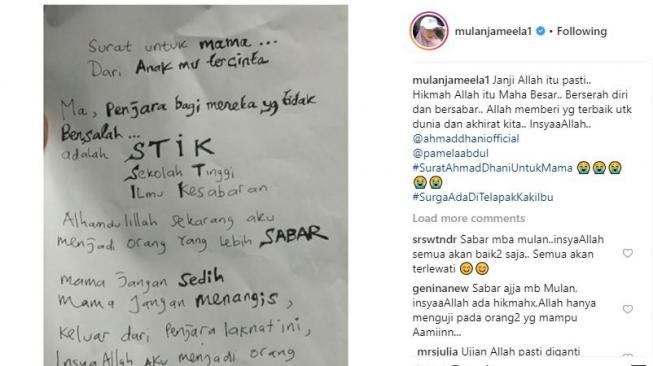 Surat untuk mama ...
Dari Anak mu tercinta
Ma, Penjara bagi mereka yg tidak
Bersalah ...
adalah STIK
Sekolah Tinggi
Ilmu Kesabaran
Alhamdulillah sekarang aku
menjadi orang yang lebih SABAR
mama Jangan Sedih
Mama Jangan menangis,
Keluar dari Penjara laknat ini,
InsyaAllah aku menjadi orang
mulanjameela1 • Following
mulanjameela1 Janji Allah itu pasti..
Hikmah Allah itu Maha Besar.. Berserah diri
dan bersabar.. Allah memberi yg terbaik utk
dunia dan akhirat kita.. InsyaaAllah..
@ahmaddhaniofficial
@pamelaabdul
#SuratAhmadDhaniUntukMama 😭 😭 😭
😭 😭
#SurgaAdaDiTelapakKakiIbu
Load more comments
srswtndr Sabar mba mulan..insyaAllah
semua akan baik2 saja.. Semua akan
terlewati 😊 😊
geninanew Sabar ajja mb Mulan,
insyaaAllah ada hikmahx.Allah hanya
menguji pada orang2 yg mampu
Aamiinn...
mrsjulia Ujian Allah pasti diganti